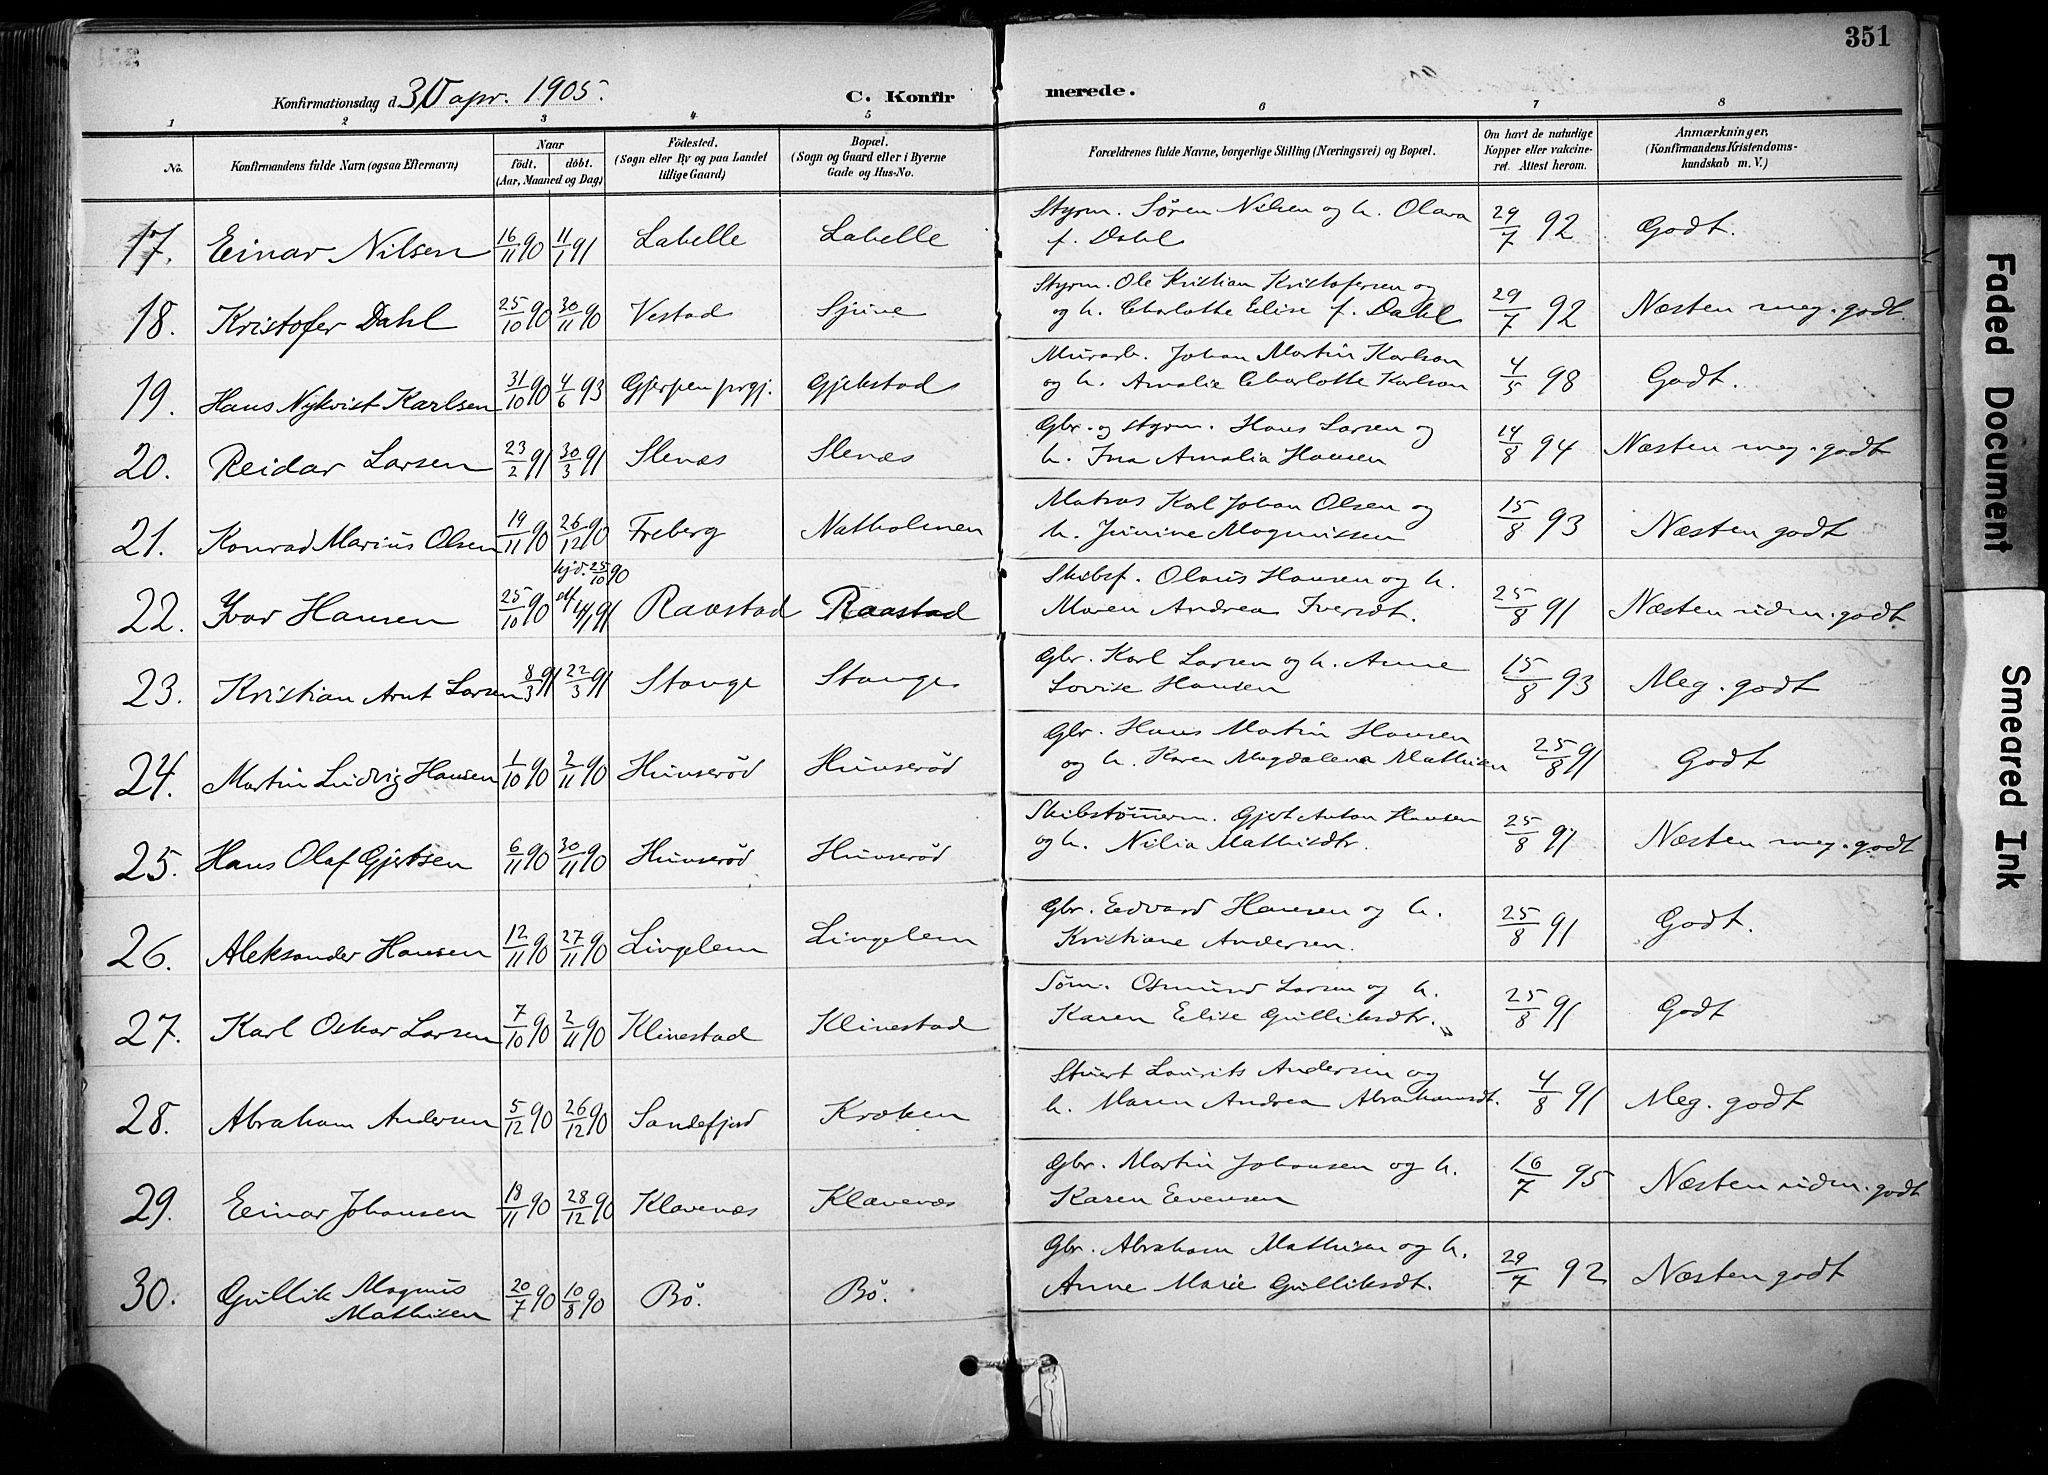 351
Konfirmationsdag d. 30 apr. 1905.
C. Konfirmerede.
1 2 3 4 5 6 7 8
No.
Konfirmandens fulde Navn (ogsaa Efternavn)
Naar
födt. döbt.
(Aar, Maaned og Dag)
Födested.
(Sogn eller By og paa Landet
tillige Gaard)
Bopæl.
(Sogn og Gaard eller i Byerne
Gade og Hus-No.
Forældrenes fulde Navne, borgerlige Stilling (Næringsvei) og Bopæl.
Om havt de naturlige
Kopper eller vakcine-
ret. Attest herom.
Anmærkninger,
(Konfirmandens Kristendoms-
kundskab m. V.)
17. Einar Nilsen 16/11 90 11/1 91 Labelle Labelle Styrm. Sören Nilsen og h. Olava
f. Dahl 29/7 92 Godt.
18. Kristofer Dahl 25/10 90 30/11 90 Vestad Sjue Styrm. Ole Kristian Kristofersen og
og h. Charlotte Elise f. Dahl 29/7 92 Næsten meg. godt.
19. Hans Nykvist Karlsen 31/10 90 4/6 93 Gjerpen prgj. Gjekstad Murarb. Johan Martin Karlson
og h. Amalie Charlotte Karlson 4/5 98 Godt.
20. Reidar Larsen 23/2 91 30/3 91 Slenæs Slenæs Gbr. og styrm. Hans Larsen og
h. Ina Amalia Hansen 14/8 94 Næsten meg. godt
21. Konrad Marius Olsen 19/11 90 26/12 90 Freberg Natholmen Matros Karl Johan Olsen og
h. Jenine Magnussen 15/8 93 Næsten godt
22. Ivar Hansen 25/10 90 hjd. 25/10 90
stf. 4/1 91 Raastad Raastad Skibsf. Olaus Hansen og h.
Maren Andrea Iversdt. 25/8 91 Næsten udm. godt.
23. Kristian Arnt Larsen 8/3 91 22/3 91 Stange Stange Gbr. Karl Larsen og h. Anne
Lovise Hansen 15/8 93 Meg. godt
24. Martin Ludvig Hansen 1/10 90 2/11 90 Hunserød Hunserød Gbr. Hans Martin Hansen
og h. Karen Magdalena Mathisen 25/8 91 Godt
25. Hans Olaf Gjertsen 6/11 90 30/11 90 Hunserød Hunserød Skibstømerm. Gjert Anton Hansen
og h. Nilia Mathisdtr. 25/8 91 Næsten meg. godt
26. Aleksander Hansen 12/11 90 27/11 90 Lingelem Lingelem Gbr. Edvard Hansen og h.
Kristiane Andersen. 25/8 91 Godt.
27. Karl Oskar Larsen 7/10 90 2/11 90 Klinestad Klinestad Søm. Osmund Larsen og h.
Karen Elise Gulliksdtr. 25/8 91 Godt
28. Abraham Andersen 5/12 90 26/12 90 Sandefjord Kraken Stuert Laurits Andersen og
h. Maren Andrea Abrahamsdt. 4/8 91 Meg. godt
29. Einar Johansen 18/11 90 28/12 90 Klavenæs Klavenæs Gbr. Martin Johansen og h.
Karen Evensen 16/7 95 Næsten udm. godt
30. Gullik Magnus
Mathisen 20/7 90 10/8 90 Bö. Bö. Gbr. Abraham Mathisen og h.
Anne Marie Gulliksdt. 29/7 92 Næsten godt
Faded Document
Smeared Ink